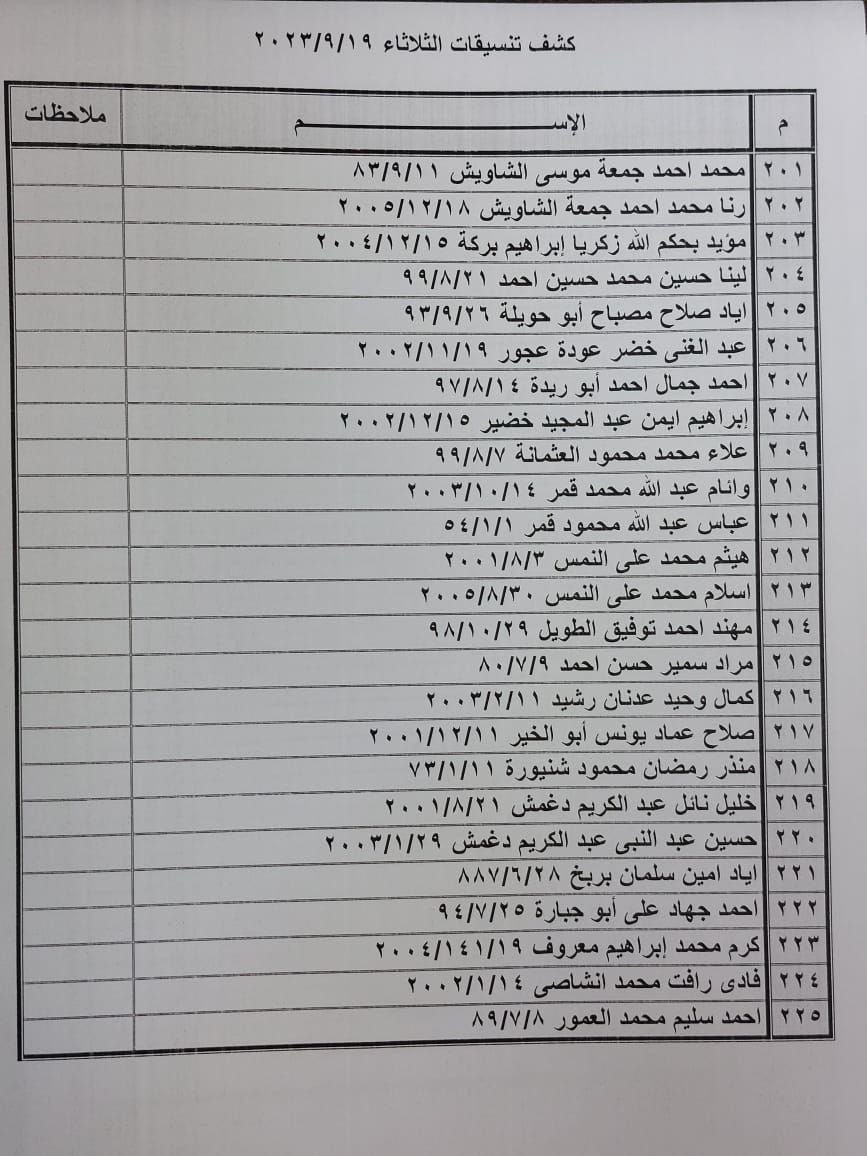 كشف تنسيقات الثلاثاء ٢٠٢٣/٩/١٩
م الإســـــــــم ملاحظات
٢٠١ محمد احمد جمعة موسى الشاويش ٨٣/٩/١١
٢٠٢ رنا محمد احمد جمعة الشاويش ٢٠٠٥/١٢/١٨
٢٠٣ مؤيد بحكم الله زكريا إبراهيم بركة ٢٠٠٤/١٢/١٥
٢٠٤ لينا حسين محمد حسين احمد ٩٩/٨/٢١
٢٠٥ اياد صلاح مصباح أبو حويلة ٩٣/٩/٢٦
٢٠٦ عبد الغنى خضر عودة عجور ٢٠٠٢/١١/١٩
٢٠٧ احمد جمال احمد أبو ريدة ٩٧/٨/١٤
٢٠٨ إبراهيم ايمن عبد المجيد خضير ٢٠٠٢/١٢/١٥
٢٠٩ علاء محمد محمود العثمانة ٩٩/٨/٧
٢١٠ وانام عبد الله محمد قمر ٢٠٠٣/١٠/١٤
٢١١ عباس عبد الله محمود قمر ٥٤/١/١
٢١٢ هيثم محمد على النمس ٢٠٠١/٨/٣
٢١٣ اسلام محمد على النمس ٢٠٠٥/٨/٣٠
٢١٤ مهند احمد توفيق الطويل ٩٨/١٠/٢٩
٢١٥ مراد سمير حسن احمد ٨٠/٧/٩
٢١٦ كمال وحيد عدنان رشيد ٢٠٠٣/٢/١١
٢١٧ صلاح عماد يونس أبو الخير ٢٠٠١/١٢/١١
٢١٨ منذر رمضان محمود شنيورة ٧٣/١/١١
٢١٩ خليل نائل عبد الكريم دغمش ٢٠٠١/٨/٢١
٢٢٠ حسين عبد النبى عبد الكريم دغمش ٢٠٠٣/١/٢٩
٢٢١ اياد امين سلمان بربخ ٨٨٧/٦/٢٨
٢٢٢ احمد جهاد على أبو جبارة ٩٤/٧/٢٥
٢٢٣ كرم محمد إبراهيم معروف ٢٠٠٤/١٤١/١٩
٢٢٤ فادى رافت محمد انشاصى ٢٠٠٢/١/١٤
٢٢٥ احمد سليم محمد العمور ٨٩/٧/٨